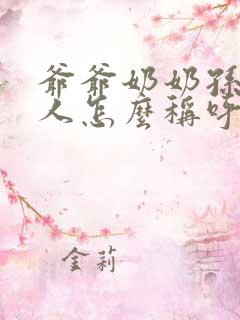 爺爺奶奶孫
人怎麼稱呼
金莉